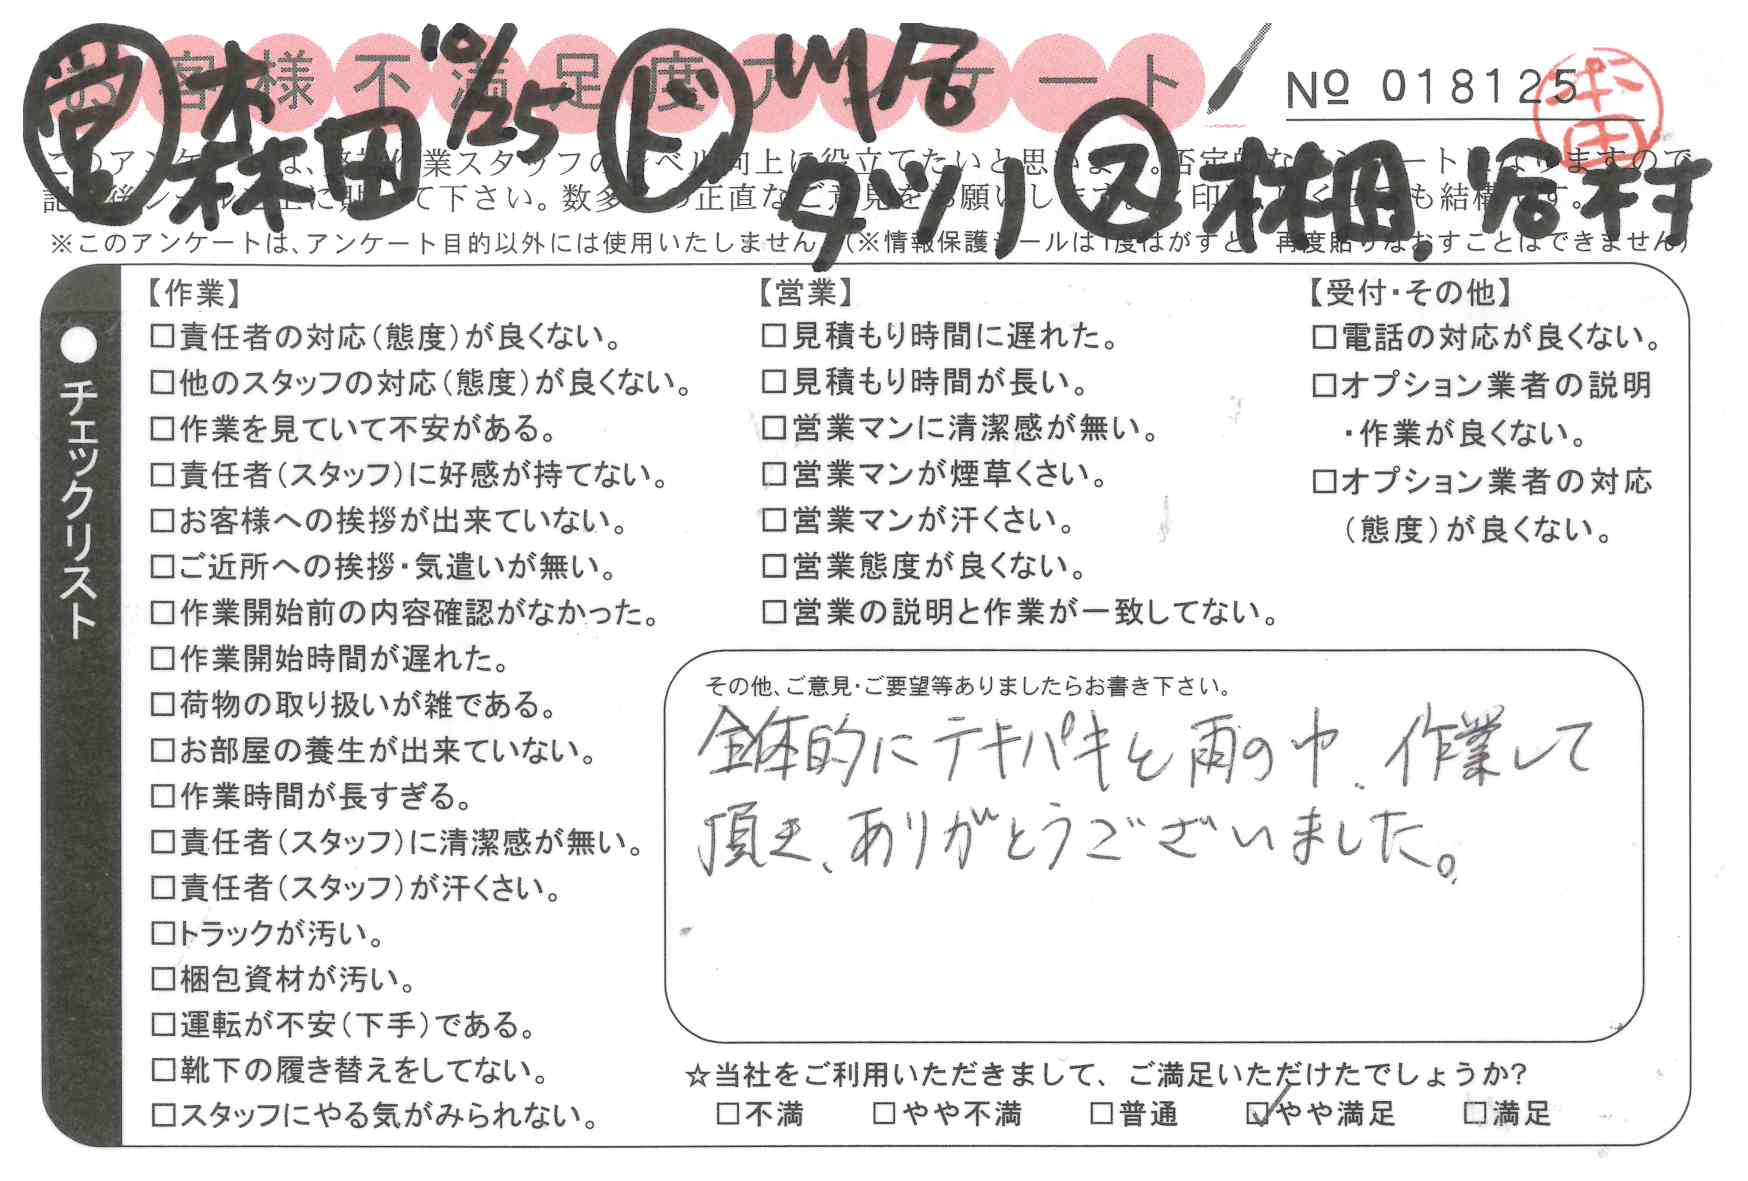 お客様不満足度アンケート
No 018125
営 森田 10/25 ド 川居 ス 林田. 居村
タツノ
このアンケートは、弊社作業スタッフのレベル向上に役立てたいと思います。否定的なアンケートとなりますので
※このアンケートは、アンケート目的以外には使用いたしません。(※情報保護シールは1度はがすと、再度貼りなおすことはできません)
●チェックリスト
【作業】
□責任者の対応(態度)が良くない。
□他のスタッフの対応(態度)が良くない。
□作業を見ていて不安がある。
□責任者(スタッフ)に好感が持てない。
□お客様への挨拶が出来ていない。
□ご近所への挨拶・気遣いが無い。
□作業開始前の内容確認がなかった。
□作業開始時間が遅れた。
□荷物の取り扱いが雑である。
□お部屋の養生が出来ていない。
□作業時間が長すぎる。
□責任者(スタッフ)に清潔感が無い。
□責任者(スタッフ)が汗くさい。
□トラックが汚い。
□梱包資材が汚い。
□運転が不安(下手)である。
□靴下の履き替えをしてない。
□スタッフにやる気がみられない。
【営業】
□見積もり時間に遅れた。
□見積もり時間が長い。
□営業マンに清潔感が無い。
□営業マンが煙草くさい。
□営業マンが汗くさい。
□営業態度が良くない。
□営業の説明と作業が一致してない。
【受付・その他】
□電話の対応が良くない。
□オプション業者の説明
・作業が良くない。
□オプション業者の対応
(態度)が良くない。
その他、ご意見・ご要望等ありましたらお書き下さい。
全体的にテキパキと雨の中、作業して
頂き、ありがとうございました。
☆当社をご利用いただきまして、ご満足いただけたでしょうか?
□不満 □やや不満 □普通 ☑やや満足 □満足